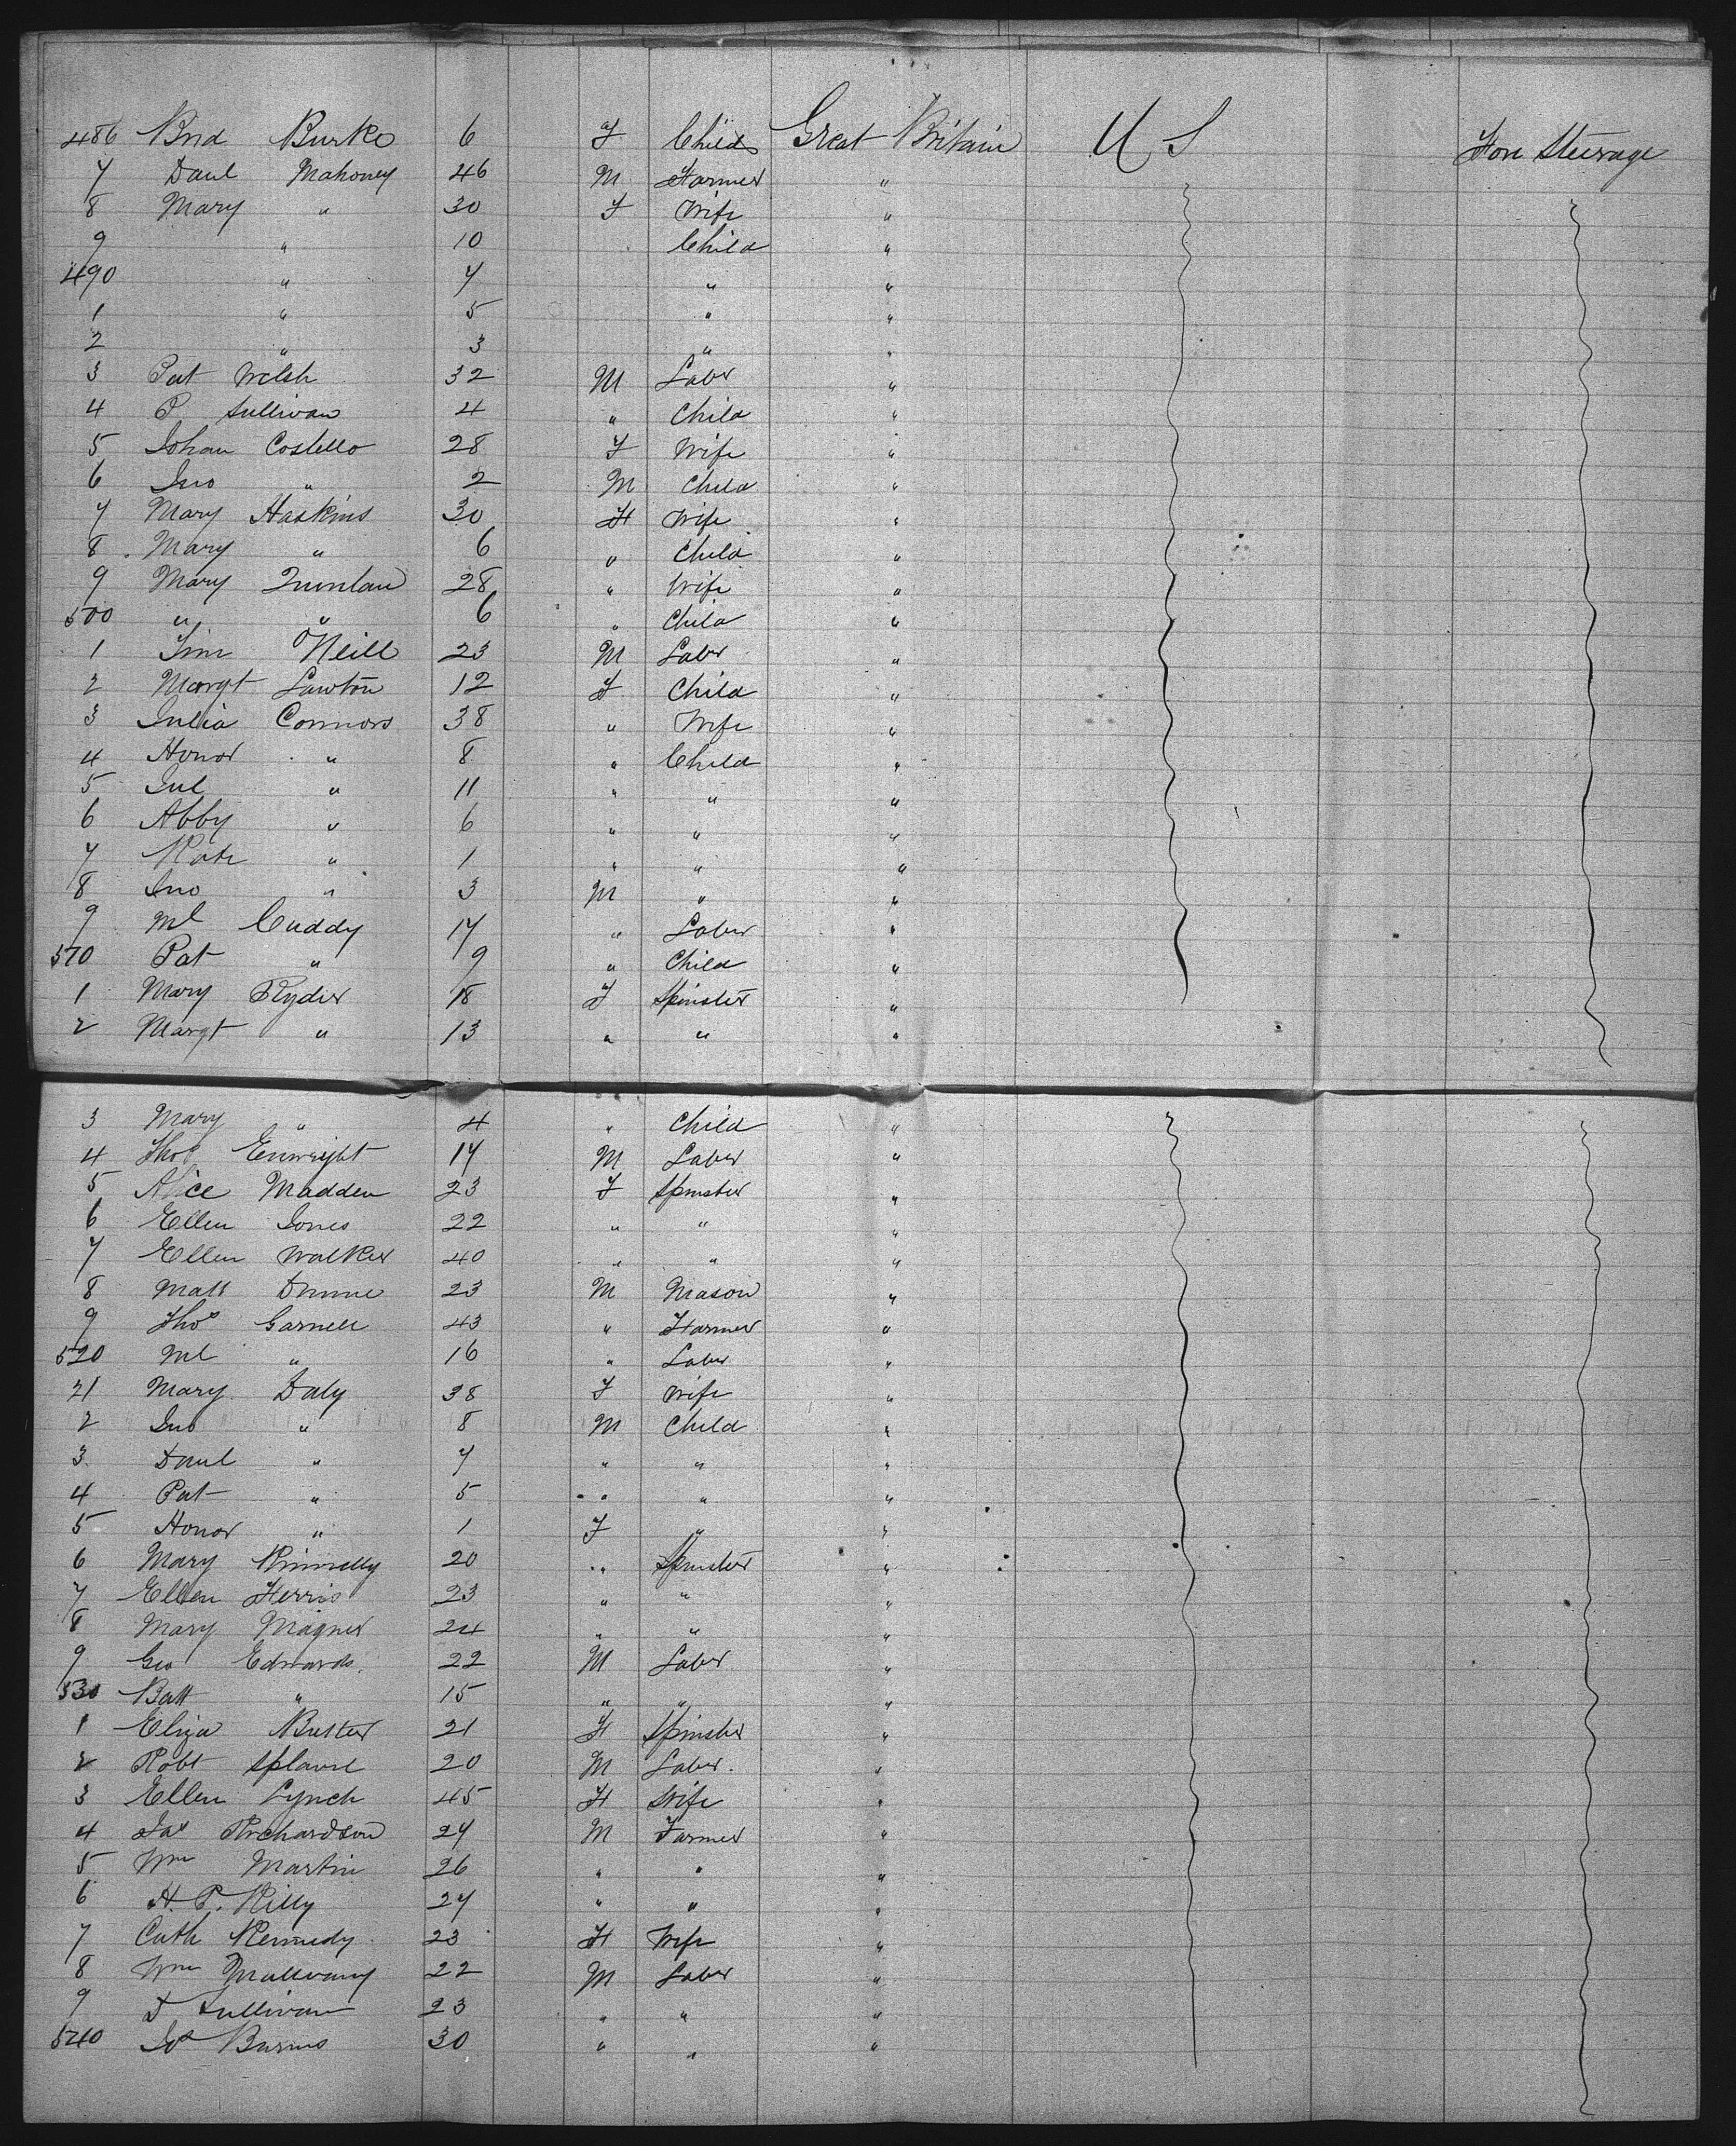 486 Brid Burke 6 F Child Great Britain U S Fore Steerage
7 Danl Mahoney 46 M Farmer "
8 Mary " 30 F Wife "
9 " 10 Child "
490 " 7 " "
1 " 5 " "
2 " 3 " "
3 Pat Welsh 32 M Labr "
4 P Sullivan 4 " Child "
5 Johan Costello 28 F Wife "
6 Jno " 2 M Child "
7 Mary Haskins 30 F Wife "
8 Mary " 6 " Child "
9 Mary Quinlan 28 " Wife "
500 " " 6 " Child "
1 Jim O'Neill 23 M Labr "
2 Margt Lawton 12 F Child "
3 Julia Connors 38 " Wife "
4 Honor " 8 " Child "
5 Jul " 11 " " "
6 Abby " 6 " " "
7 Kate " 1 " " "
8 Jno " 3 M " "
9 Ml Cuddy 17 " Labr "
510 Pat " 9 " Child "
1 Mary Ryder 18 F Spinster "
2 Margt " 13 " " "
3 Mary " 4 " Child "
4 Thos Enwright 17 M Labr "
5 Alice Madden 23 F Spinster "
6 Ellen Jones 22 " " "
7 Ellen Walker 40 " " "
8 Matt Dunne 23 M Mason "
9 Thos 43 " Farmer "
520 Ml " 16 " Labr "
21 Mary Daly 38 F Wife "
2 Jno " 8 M Child "
3 Danl " 7 " " "
4 Pat " 5 " " "
5 Honor " 1 F " "
6 Mary 20 " Spinster "
7 Ellen Ferris 23 " " "
8 Mary Magner 24 " " "
9 Geo Edwards 22 M Labr "
530 Batt " 15 " " "
1 Eliza Butler 21 F Spinster "
2 Robt 20 M Labr. "
3 Ellen Lynch 45 F Wife "
4 Jas Richardson 27 M Farmer "
5 Wm Martin 26 " " "
6 H. P. Killy 27 " " "
7 Cath Kennedy 23 F Wife "
8 Wm 22 M Labr "
9 D Sullivan 23 " " "
540 Jos Burns 30 " " "